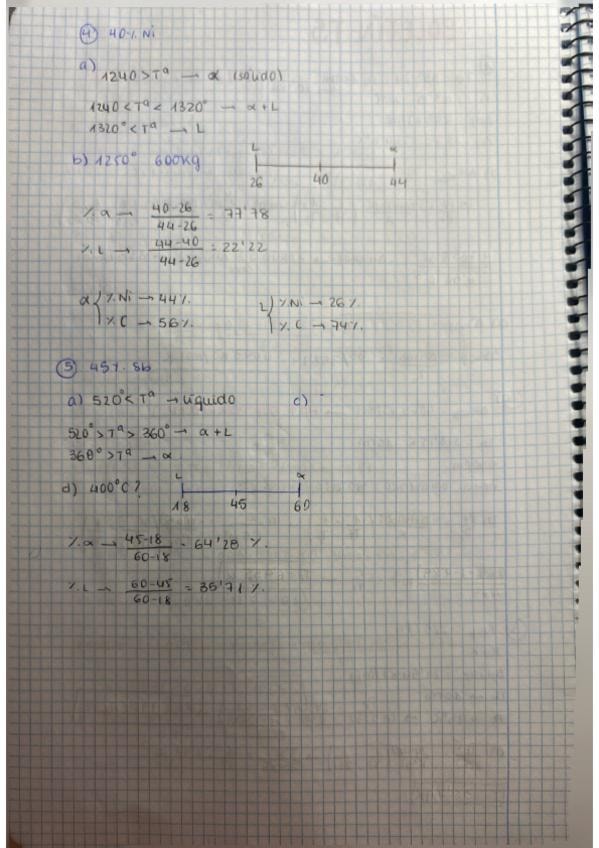 ④ 40% Ni
a) 1240 > Tª → α (sólido)
1240 < Tª < 1320° → α + L
1320° < Tª → L
b) 1250° 600kg
L α
26 40 44
% α → 40-26 / 44-26 = 77'78
% L → 44-40 / 44-26 = 22'22
α { % Ni → 44% L { % Ni → 26%
% C → 56% % C → 74%
⑤ 45% Sb
a) 520° < Tª → líquido c)
520° > Tª > 360° → α + L
360° > Tª → α
d) 400°C? L α
18 45 60
% α → 45-18 / 60-18 = 64'28 %
% L → 60-45 / 60-18 = 35'71 %